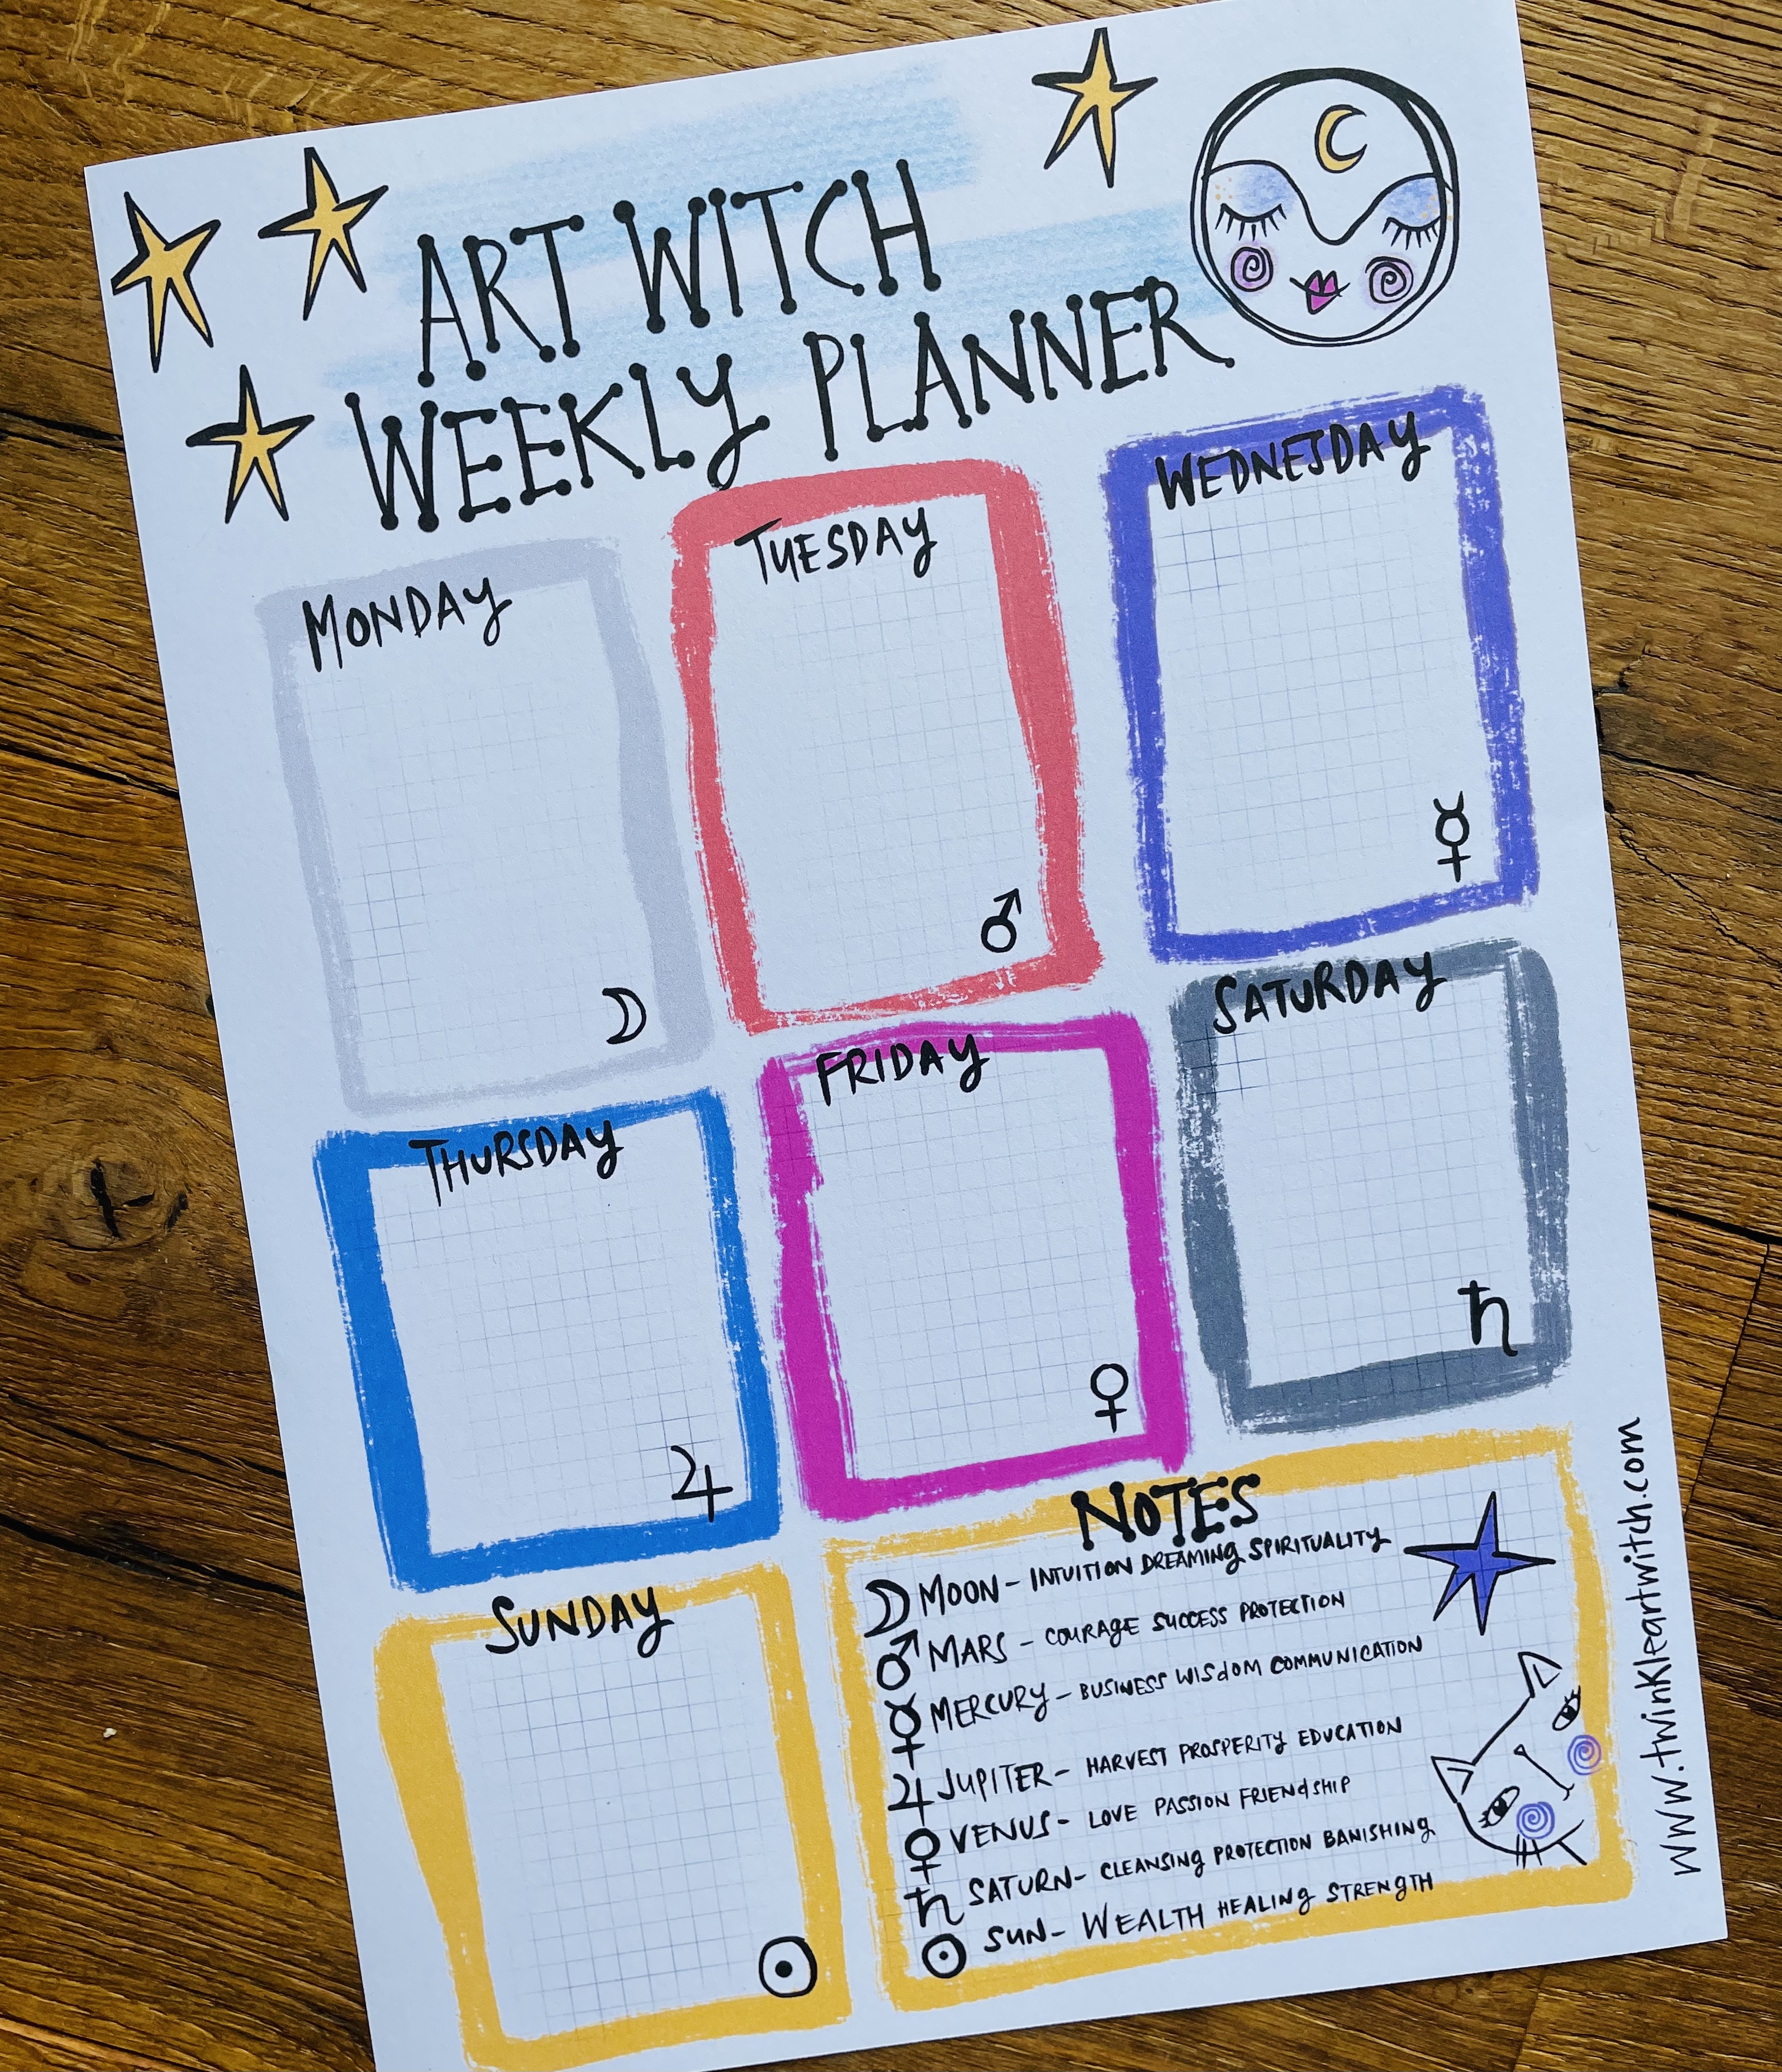 ART WITCH
WEEKLY PLANNER
MONDAY
TUESDAY
WEDNESDAY
THURSDAY
FRIDAY
SATURDAY
SUNDAY
NOTES
☽ MOON - INTUITION DREAMING SPIRITUALITY
♂ MARS - COURAGE SUCCESS PROTECTION
☿ MERCURY - BUSINESS WISDOM COMMUNICATION
♃ JUPITER - HARVEST PROSPERITY EDUCATION
♀ VENUS - LOVE PASSION FRIENDSHIP
♄ SATURN - CLEANSING PROTECTION BANISHING
☉ SUN - WEALTH HEALING STRENGTH
www.twinkleartwitch.com